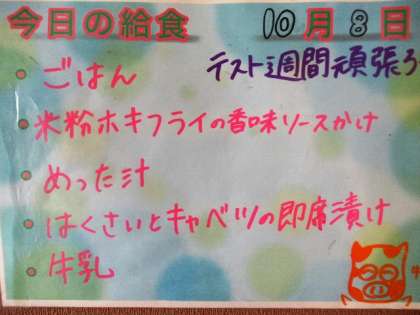 今日の給食 10月8日
テスト週間頑張ろ
ごはん
米粉ホキフライの香味ソースかけ
めった汁
はくさいとキャベツの即席漬け
牛乳